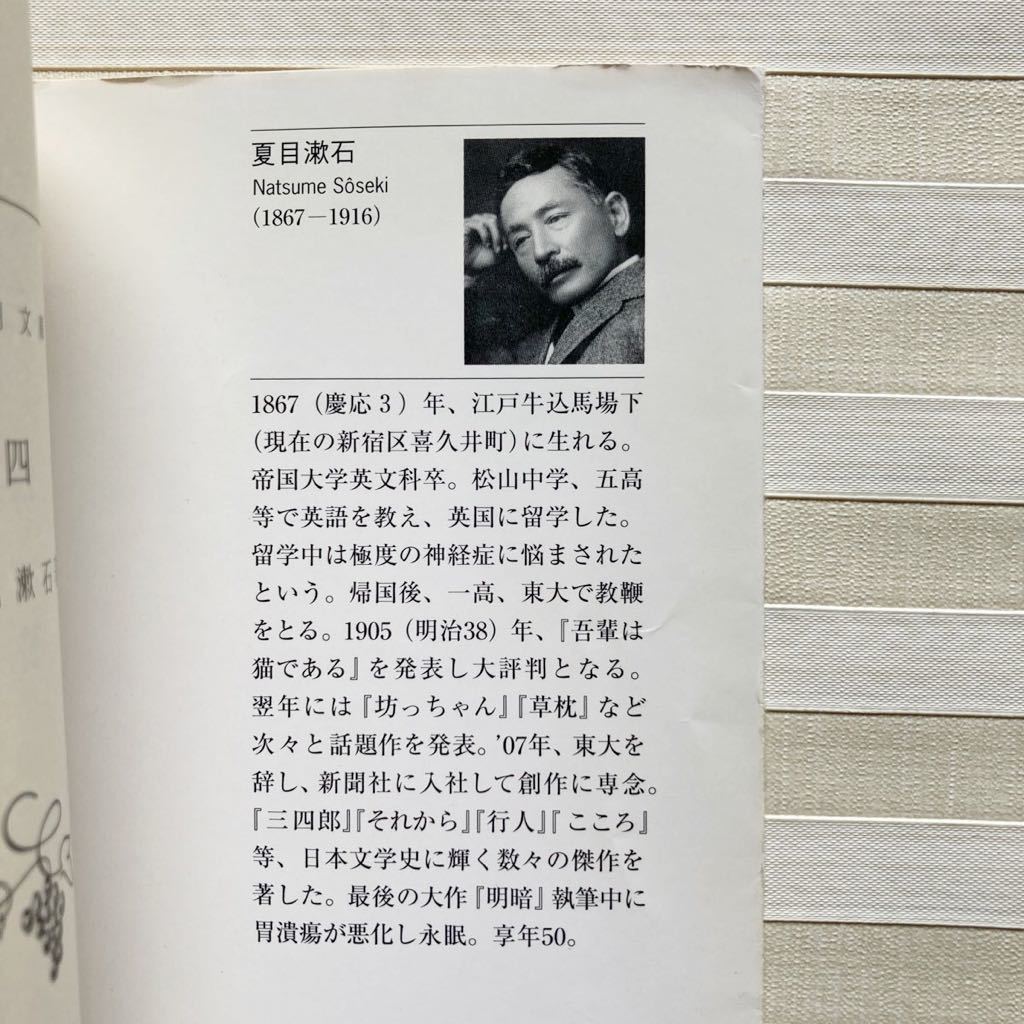 夏目漱石
Natsume Sôseki
(1867－1916)
1867（慶応3）年、江戸牛込馬場下
(現在の新宿区喜久井町)に生れる。
帝国大学英文科卒。松山中学、五高
等で英語を教え、英国に留学した。
留学中は極度の神経症に悩まされた
という。帰国後、一高、東大で教鞭
をとる。1905（明治38）年、『吾輩は
猫である』を発表し大評判となる。
翌年には『坊っちゃん』『草枕』など
次々と話題作を発表。'07年、東大を
辞し、新聞社に入社して創作に専念。
『三四郎』『それから』『行人』『こころ』
等、日本文学史に輝く数々の傑作を
著した。最後の大作『明暗』執筆中に
胃潰瘍が悪化し永眠。享年50。
文
四
漱石